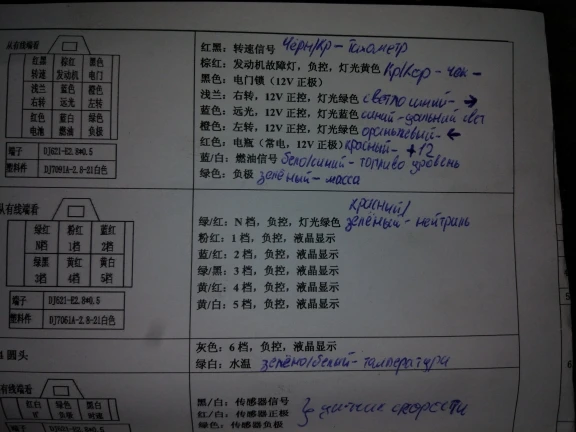 从有线端看
红黑 棕红 黑色
转速 发动机 电门
浅兰 蓝色 橙色
右转 远光 左转
红色 蓝白 绿色
电池 燃油 负极
端子 DJ621-E2.8*0.5
塑料件 DJ7091A-2.8-21白色
红黑：转速信号 Чёрн/Кр - Тахометр
棕红：发动机故障灯，负控，灯光黄色 Кр/Кор - чек -
黑色：电门锁（12V 正极）
浅兰：右转，12V 正控，灯光绿色 светло синий - →
蓝色：远光，12V 正控，灯光蓝色 синий - дальний свет
橙色：左转，12V 正控，灯光绿色 оранжевый - ←
红色：电瓶（常电，12V 正极） красный - +12
蓝/白：燃油信号 бело/синий - топливо уровень
绿色：负极 зелёный - масса
从有线端看
绿红 粉红 蓝红
N档 1档 2档
绿黑 黄红 黄白
3档 4档 5档
端子 DJ621-E2.8*0.5
塑料件 DJ7061A-2.8-21白色
красный/
绿/红：N 档，负控，灯光绿色 зелёный - нейтраль
粉红：1 档，负控，液晶显示
蓝/红：2 档，负控，液晶显示
绿/黑：3 档，负控，液晶显示
黄/红：4 档，负控，液晶显示
黄/白：5 档，负控，液晶显示
圆头
灰色：6 档，负控，液晶显示
绿白：水温 зелёно/белый - температури
有线端看
红白 绿色 黑白
端子
黑/白：传感器信号
红/白：传感器正极 } датчик скорости
绿色：传感器负极
5
6